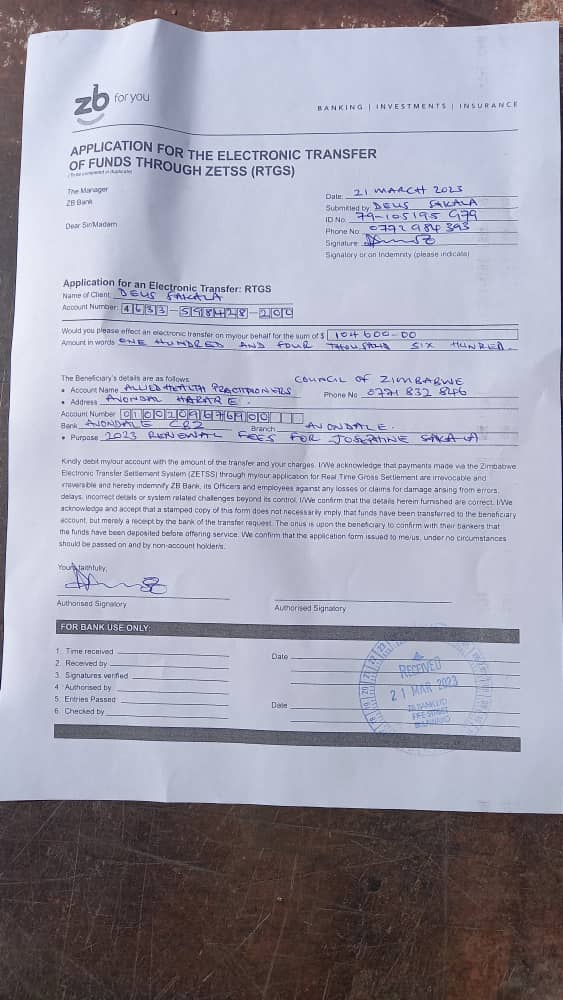 zb for you
BANKING | INVESTMENTS | INSURANCE
APPLICATION FOR THE ELECTRONIC TRANSFER
OF FUNDS THROUGH ZETSS (RTGS)
(To be completed in duplicate)
The Manager
ZB Bank
Dear Sir/Madam
Date: 21 MARCH 2023
Submitted by DEUS SAKALA
ID No. 79-105195 G79
Phone No. 0772 984 393
Signature
Signatory or on Indemnity (please indicate)
Application for an Electronic Transfer: RTGS
Name of Client DEUS SAKALA
Account Number: 4633-598428-200
Would you please effect an electronic transfer on my/our behalf for the sum of $ 104 600-00
Amount in words ONE HUNDRED AND FOUR THOUSAND SIX HUNRED.
The Beneficiary's details are as follows
• Account Name ALLIED HEALTH PRACTITIONERS COUNCIL OF ZIMBABWE
• Address AVONDAL HARARE. Phone No 0771 832 846
Account Number 0100209676900
Bank AVONDALE CBZ Branch AVONDALE.
• Purpose 2023 RENEWAL FEES FOR JOSEPHINE SAKALA
Kindly debit my/our account with the amount of the transfer and your charges. I/We acknowledge that payments made via the Zimbabwe
Electronic Transfer Settlement System (ZETSS) through my/our application for Real Time Gross Settlement are irrevocable and
irreversible and hereby indemnify ZB Bank, its Officers and employees against any losses or claims for damage arising from errors,
delays, incorrect details or system related challenges beyond its control. I/We confirm that the details herein furnished are correct. I/We
acknowledge and accept that a stamped copy of this form does not necessarily imply that funds have been transferred to the beneficiary
account, but merely a receipt by the bank of the transfer request. The onus is upon the beneficiary to confirm with their bankers that
the funds have been deposited before offering service. We confirm that the application form issued to me/us, under no circumstances
should be passed on and by non-account holder/s.
Yours faithfully,
Authorised Signatory
Authorised Signatory
FOR BANK USE ONLY:
1. Time received
2. Received by
3. Signatures verified
4. Authorised by
5. Entries Passed
6. Checked by
Date
Date
RECEIVED
21 MAR 2023